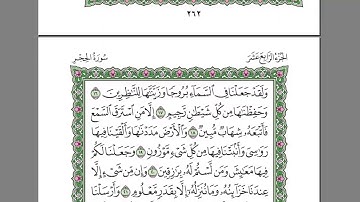 ٢٦٢
الجزء الرابع عشر
سورة الحجر
وَلَقَدْ جَعَلْنَا فِي السَّمَاءِ بُرُوجًا وَزَيَّنَّاهَا لِلنَّاظِرِينَ ١٦
وَحَفِظْنَاهَا مِن كُلِّ شَيْطَانٍ رَّجِيمٍ ١٧ إِلَّا مَنِ اسْتَرَقَ السَّمْعَ
فَأَتْبَعَهُ شِهَابٌ مُّبِينٌ ١٨ وَالْأَرْضَ مَدَدْنَاهَا وَأَلْقَيْنَا فِيهَا
رَوَاسِيَ وَأَنبَتْنَا فِيهَا مِن كُلِّ شَيْءٍ مَّوْزُونٍ ١٩ وَجَعَلْنَا لَكُمْ
فِيهَا مَعَايِشَ وَمَن لَّسْتُمْ لَهُ بِرَازِقِينَ ٢٠ وَإِن مِّن شَيْءٍ إِلَّا
عِندَنَا خَزَائِنُهُ وَمَا نُنَزِّلُهُ إِلَّا بِقَدَرٍ مَّعْلُومٍ ٢١ وَأَرْسَلْنَا